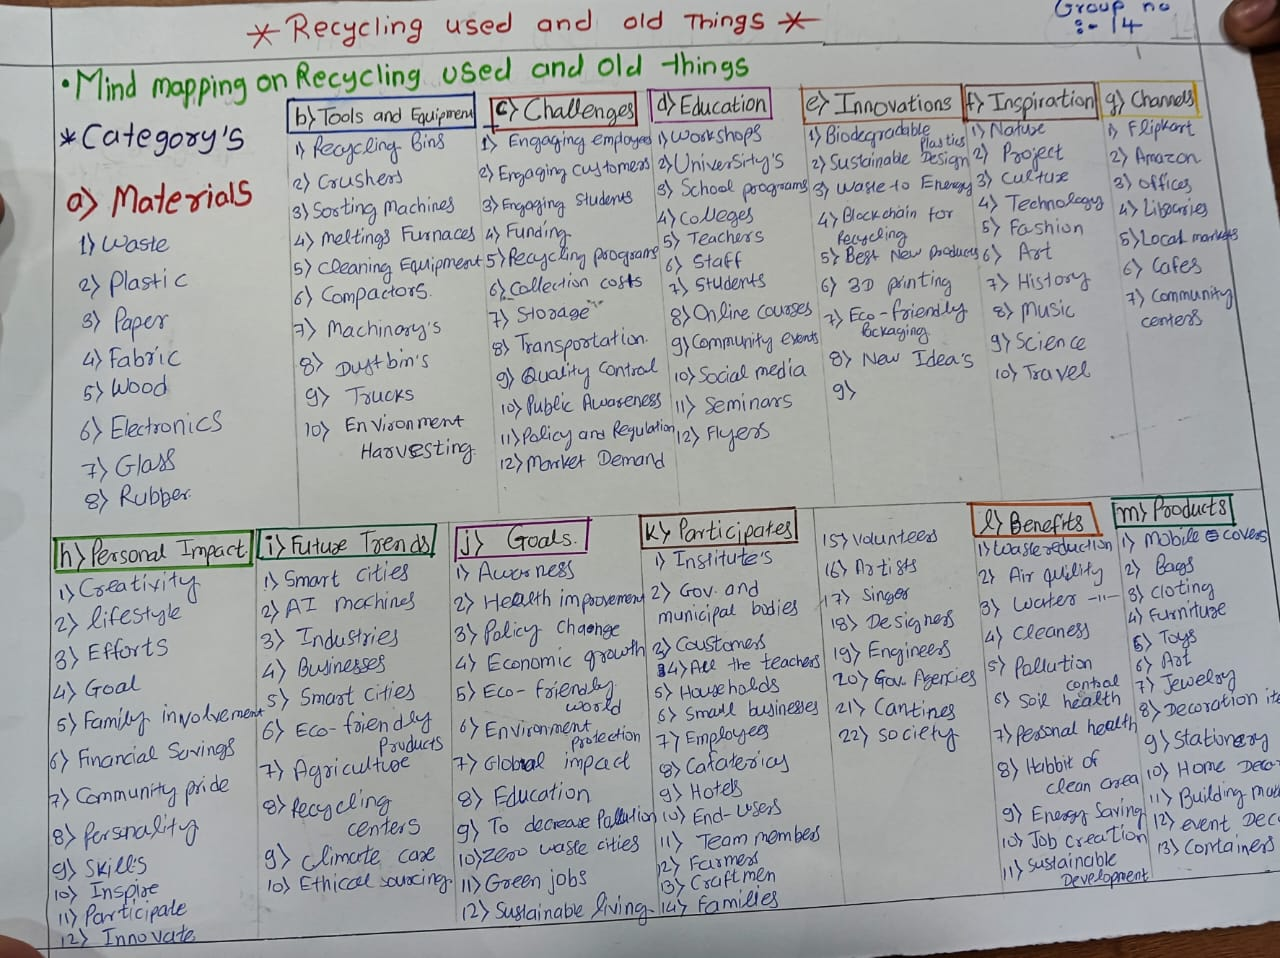 * Recycling used and old Things *
Group no
:- 14
• Mind mapping on Recycling used and old things
* Category's
a) Materials
1) Waste
2) Plastic
3) Paper
4) Fabric
5) Wood
6) Electronics
7) Glass
8) Rubber
b) Tools and Equipment
1) Recycling Bins
2) Crushers
3) Sorting Machines
4) Meltings Furnaces
5) Cleaning Equipment
6) Compactors.
7) Machinary's
8) Dustbin's
9) Trucks
10) Environment
Harvesting
c) Challenges
1) Engaging employees
2) Engaging customers
3) Engaging students
4) Funding
5) Recycling programs
6) Collection costs
7) Storage
8) Transportation.
9) Quality control
10) Public Awareness
11) Policy and Regulation
12) Market Demand
d) Education
1) Workshops
2) University's
3) School programs
4) Colleges
5) Teachers
6) Staff
7) Students
8) Online courses
9) Community events
10) Social media
11) Seminars
12) Flyers
e) Innovations
1) Biodegradable
Plastics
2) Sustainable Design
3) Waste to Energy
4) Blockchain for
Recycling
5) Best New Products
6) 3D printing
7) Eco-friendly
Packaging
8) New Idea's
9)
f) Inspiration
1) Nature
2) Project
3) Culture
4) Technology
5) Fashion
6) Art
7) History
8) Music
9) Science
10) Travel
g) Channels
1) Flipkart
2) Amazon
3) Offices
4) Libraries
5) Local markets
6) Cafes
7) Community
centers
h) Personal Impact
1) Creativity
2) lifestyle
3) Efforts
4) Goal
5) Family involvement
6) Financial Savings
7) Community pride
8) Personality
9) Skills
10) Inspire
11) Participate
12) Innovate
i) Future Trends
1) Smart cities
2) AI machines
3) Industries
4) Businesses
5) Smart cities
6) Eco-friendly
Products
7) Agriculture
8) Recycling
centers
9) Climate care
10) Ethical sourcing
j) Goals.
1) Awarness
2) Health improvement
3) Policy change
4) Economic growth
5) Eco-friendly
world
6) Environment
protection
7) Global impact
8) Education
9) To decrease Pollution
10) Zero waste cities
11) Green jobs
12) Sustainable living.
k) Participates
1) Institute's
2) Gov. and
municipal bodies
3) Coustomers
4) All the teachers
5) Households
6) Small businesses
7) Employees
8) Cafaterias
9) Hotels
10) End-users
11) Team members
12) Farmers
13) Craftmen
14) Families
15) Volunteers
16) Artists
17) Singer
18) Designers
19) Engineers
20) Gov. Agencies
21) Cantines
22) Society
l) Benefits
1) Waste reduction
2) Air quility
3) Water -11-
4) Cleaness
5) Pollution
control
6) Soil health
7) Personal health
8) Habbit of
clean area
9) Energy Saving
10) Job creation
11) Sustainable
Development
m) Products
1) Mobile covers
2) Bags
3) Cloting
4) Furniture
5) Toys
6) Art
7) Jewelry
8) Decoration
9) Stationery
10) Home
11) Building
12) event
13) Containers